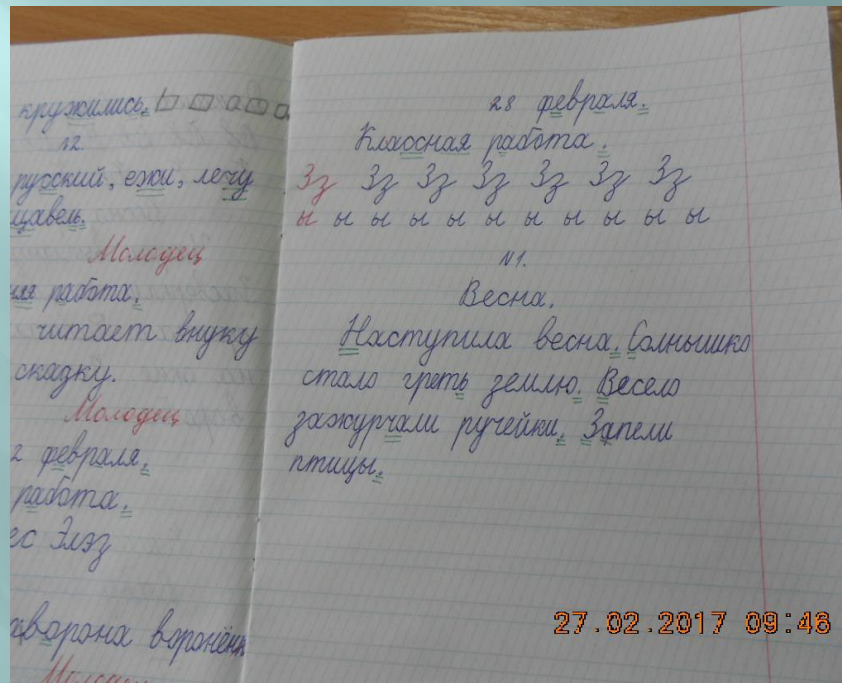 кружились.
№2.
русский, ежи, лечу
щавель.
Молодец
работа.
читает внуку
сказку.
Молодец
2 февраля.
работа.
Элэз
ворона воронён
Молодец
28 февраля.
Классная работа.
Зз Зз Зз Зз Зз Зз Зз
ы ы ы ы ы ы ы ы ы ы ы
№1.
Весна.
Наступила весна. Солнышко
стало греть землю. Весело
зажурчали ручейки. Запели
птицы.
27.02.2017 09:46